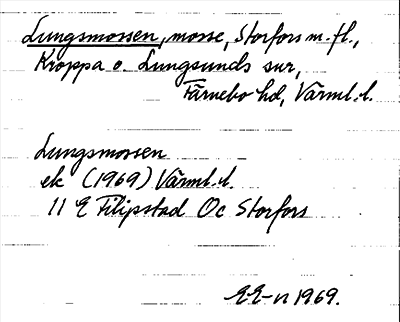 Lungsmossen, mosse, Storfors m. fl.,
Kroppa o. Lungsunds snr,
Färnebo hd, Värml. l.
Lungsmossen
ek (1969) Värml. l.
11 E Filipstad Öc Storfors
1969.